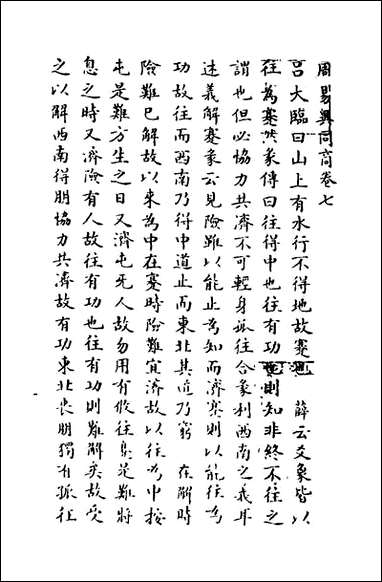 周易異同商卷七
呂大臨曰山上有水行不得地故蹇也　薛云爻象皆以
往為蹇然彖傳曰往得中也往有功也則知非終不往之
謂也但必協力共濟不可輕身孤往合彖利西南之義耳
述義解蹇彖云見險雖以能止為知而濟蹇則以能往為
功故往而西南乃得中道止而東北其道乃窮　在解時
險難已解故以來為中在蹇時險難宜濟故以往為中按
屯是難方生之日又濟屯无人故勿用有攸往蹇是難將
息之時又濟險有人故往有功也往有功則難解矣故受
之以解西南得朋協力共濟故有功東北喪朋獨有孤征